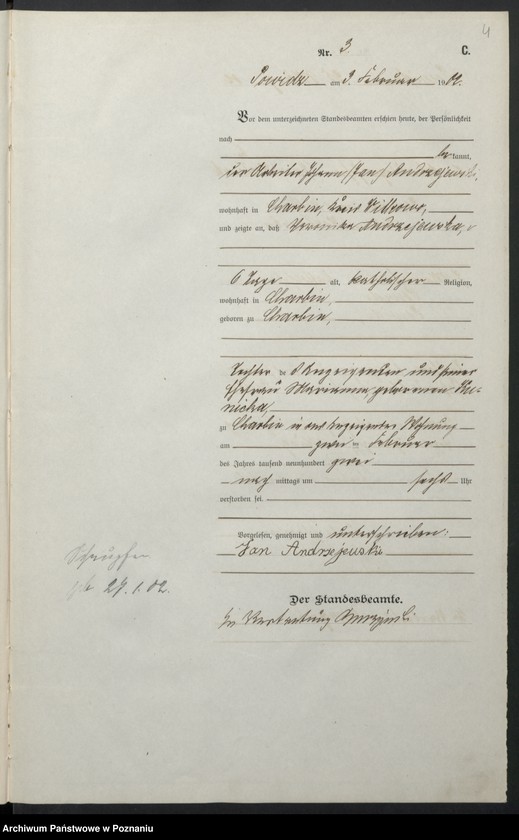 4
Nr. 3
C.
Powidz am 3. Februar 1902.
Vor dem unterzeichneten Standesbeamten erschien heute, der Persönlichkeit
nach
bekannt,
der Arbeiter Johann (Jan) Andrzejewski,
wohnhaft in Charbin, Kreis Witkowo,
und zeigte an, daß Veronika Andrzejewska,
6 Tage alt, katholischer Religion,
wohnhaft in Charbin,
geboren zu Charbin,
Tochter des Anzeigenden und seiner
Ehefrau Marianna geborenen
zu Charbin in des Anzeigenden Wohnung
am zwei ten Februar
des Jahres tausend neunhundert zwei
nach mittags um sechs Uhr
verstorben sei.
Vorgelesen, genehmigt und unterschrieben:
Jan Andrzejewski
Der Standesbeamte.
In Vertretung
27.1.02.
Archiwum Państwowe w Poznaniu